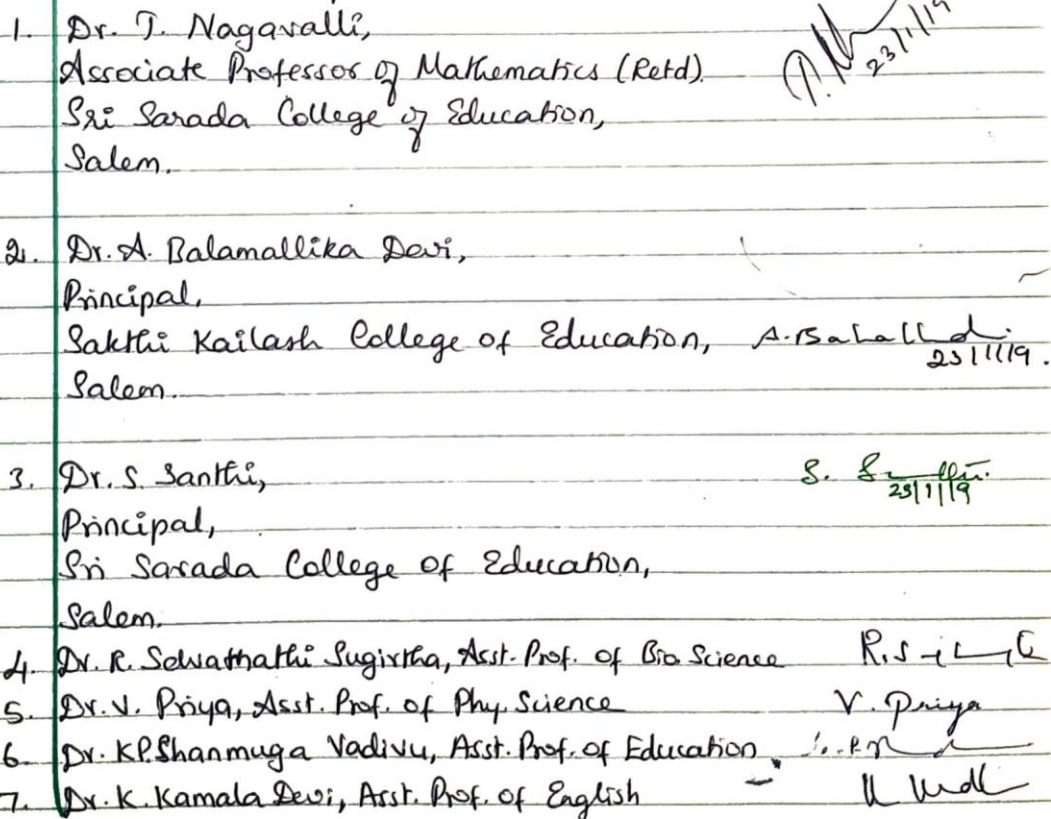 1. Dr. T. Nagavalli,
Associate Professor of Mathematics (Retd).
23/1/19
Sri Sarada College of Education,
Salem.
2. Dr. A. Balamallika Devi,
Principal,
Sakthi Kailash College of Education,
23/1/19.
Salem.
3. Dr. S. Santhi,
S.
23/1/19
Principal,
Sri Sarada College of Education,
Salem.
4. Dr. R. Selvamathi Sugirtha, Asst. Prof. of Bio Science
5. Dr. V. Priya, Asst. Prof. of Phy. Science V. Priya
6. Dr. KP. Shanmuga Vadivu, Asst. Prof. of Education
7. Dr. K. Kamala Devi, Asst. Prof. of English